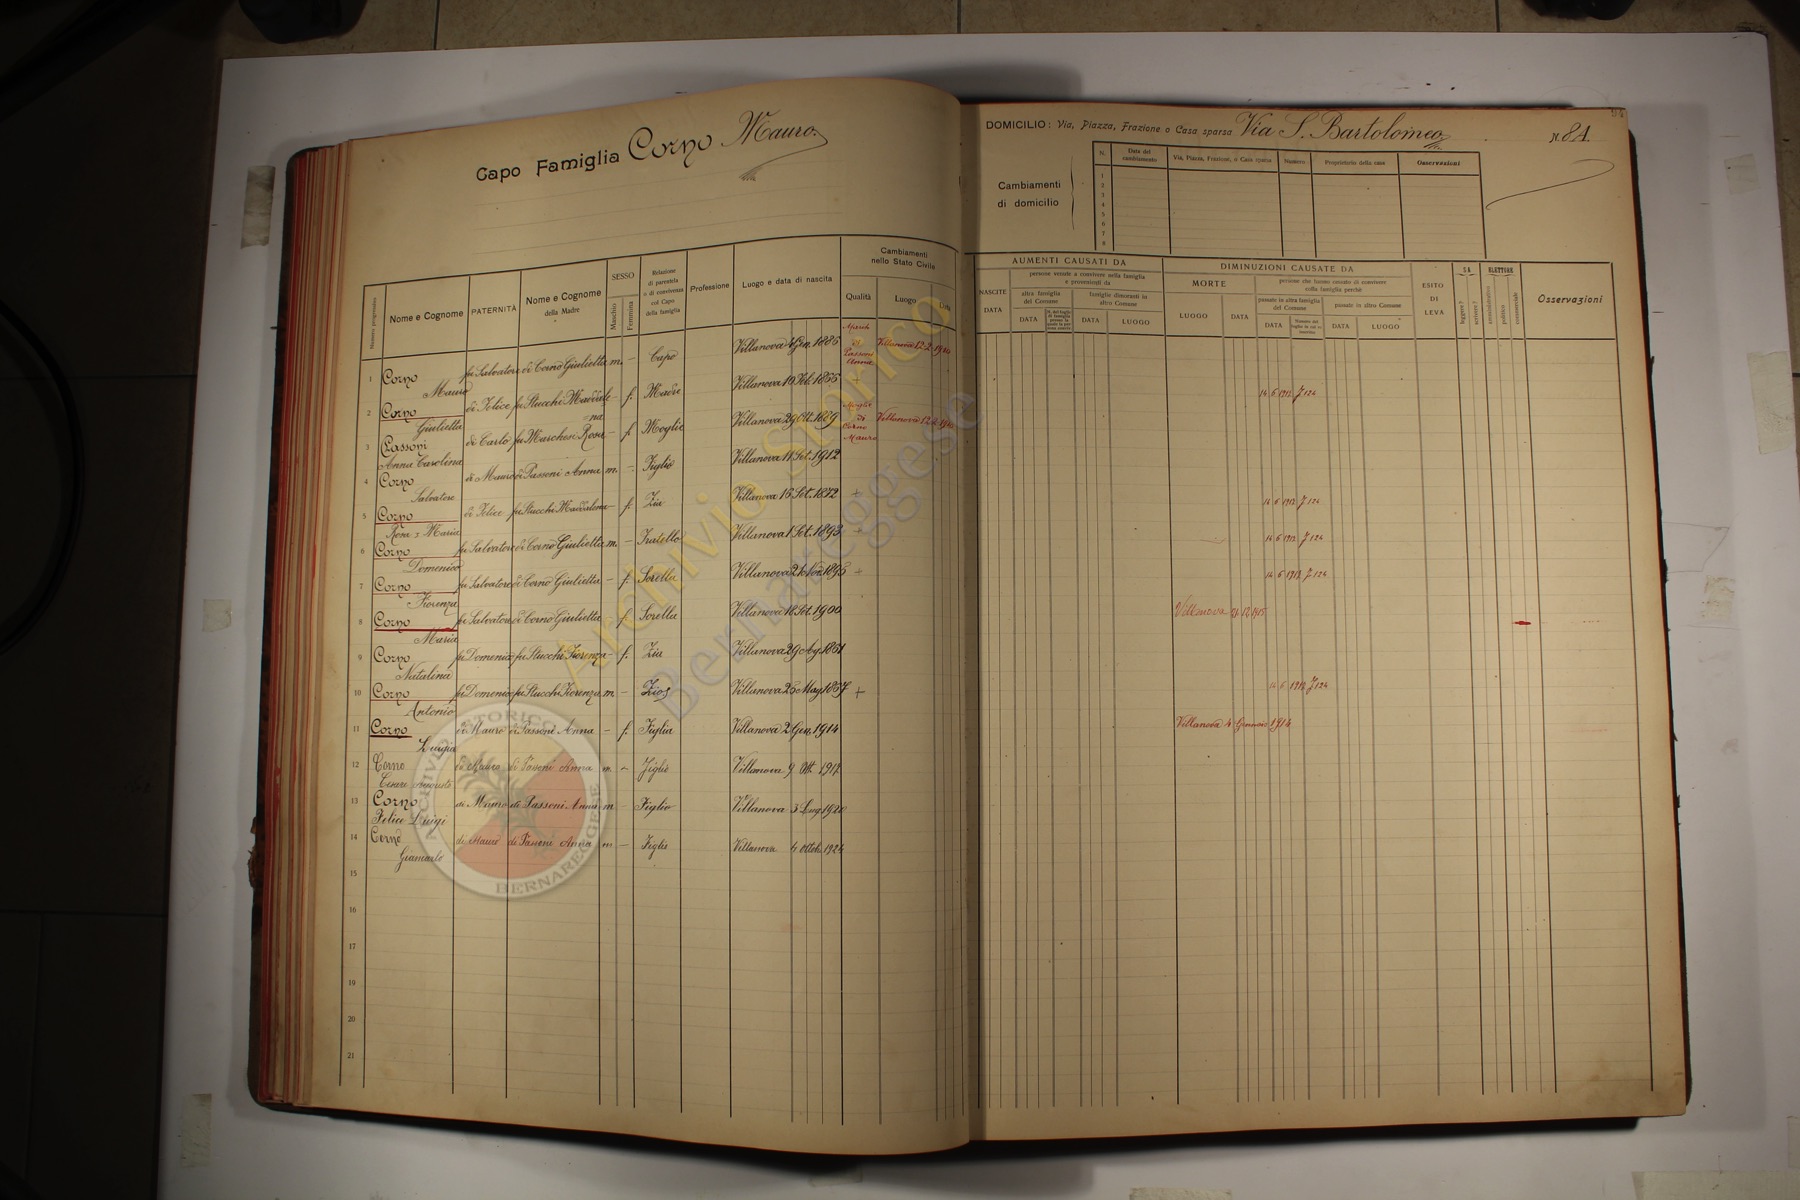 Capo Famiglia Corno Mauro.
DOMICILIO: Via, Piazza, Frazione o Casa sparsa Via S. Bartolomeo N. 81.
Cambiamenti di domicilio
N. Data del cambiamento Via, Piazza, Frazione, o Casa sparsa Numero Proprietario della casa Osservazioni
1
2
3
4
5
6
7
8
Numero progressivo
Nome e Cognome
PATERNITÀ
Nome e Cognome della Madre
SESSO
Maschio
Femmina
Relazione di parentela o di convivenza col Capo della famiglia
Professione
Luogo e data di nascita
Cambiamenti nello Stato Civile
Qualità Luogo Data
AUMENTI CAUSATI DA
NASCITE
DATA
persone venute a convivere nella famiglia e provenienti da
altra famiglia del Comune
DATA
famiglie dimoranti in altro Comune
DATA LUOGO
DIMINUZIONI CAUSATE DA
MORTE
LUOGO DATA
persone che hanno cessato di convivere nella famiglia perchè
passate in altra famiglia del Comune
DATA
passate in altro Comune
DATA LUOGO
ESITO DI LEVA
SA
leggere?
scrivere?
ELETTORE
amministrativo
politico
commerciale
Osservazioni
1 Corno Mauro fu Salvatore di Corno Giulietta m. – Capo Villanova 4 Gen. 1886 Marito di Passoni Anna Villanova 12-2-1910
2 Corno Giulietta di Felice fu Stucchi Maddalena – f. Madre Villanova 10 Feb. 1866 + 14 6 1913 F 124
3 Passoni Anna Carolina di Carlo fu Marchesi Rosa – f. Moglie Villanova 29 Ott. 1889 Moglie di Corno Mauro Villanova 12-2-1910
4 Corno Salvatore di Mauro di Passoni Anna m. – Figlio Villanova 11 Set. 1912
5 Corno Rosa s Maria di Felice fu Stucchi Maddalena – f. Zia Villanova 16 Set. 1872 + 14 6 1913 F 124
6 Corno Domenico fu Salvatore di Corno Giulietta m. – Fratello Villanova 1 Set. 1893 + 14 6 1913 F 124
7 Corno Fiorenza fu Salvatore di Corno Giulietta – f. Sorella Villanova 21 Nov. 1896 + 14 6 1913 F 124
8 Corno Maria fu Salvatore di Corno Giulietta f. Sorella Villanova 18 Set. 1900 Villanova 1915
9 Corno Natalina fu Domenico fu Stucchi Fiorenza – f. Zia Villanova 29 Ag. 1861
10 Corno Antonio fu Domenico fu Stucchi Fiorenza m – Zios Villanova 25 Mag. 1857 + 14 6 1913 F 124
11 Corno Luigia di Mauro di Passoni Anna – f. Figlia Villanova 2 Gen. 1914 Villanova 4 Gennaio 1914
12 Corno Cesare Augusto di Mauro di Passoni Anna m. – Figlio Villanova 9 Ott. 1917
13 Corno Felice Luigi di Mauro di Passoni Anna m – Figlio Villanova 3 Lug. 1920
14 Corno Giancarlo di Mauro di Passoni Anna m – Figlio Villanova 4 Ottob. 1924
15
16
17
18
19
20
21
Archivio Storico
Bernareggese
ARCHIVIO STORICO BERNAREGGESE